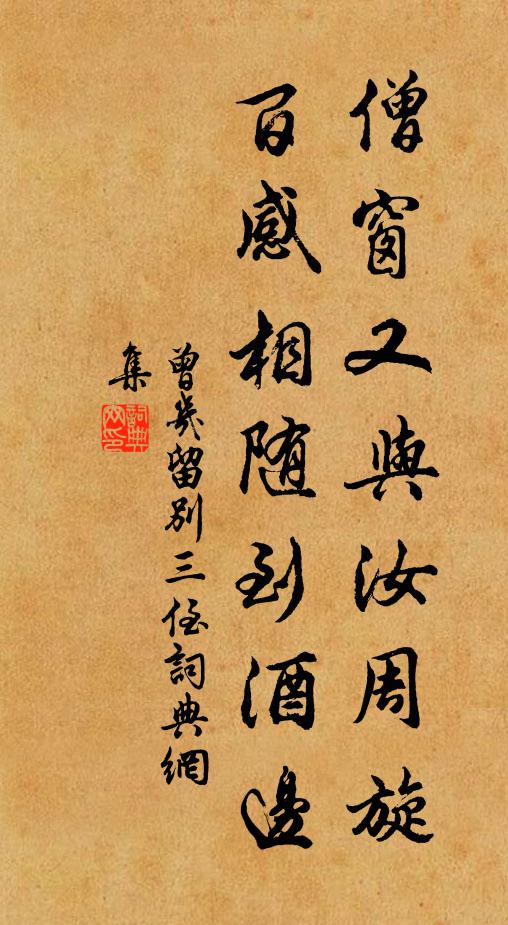 僧窗又與汝周旋
百感相随到酒邊
曾幾留别三侄詞典網
集
詞典網印